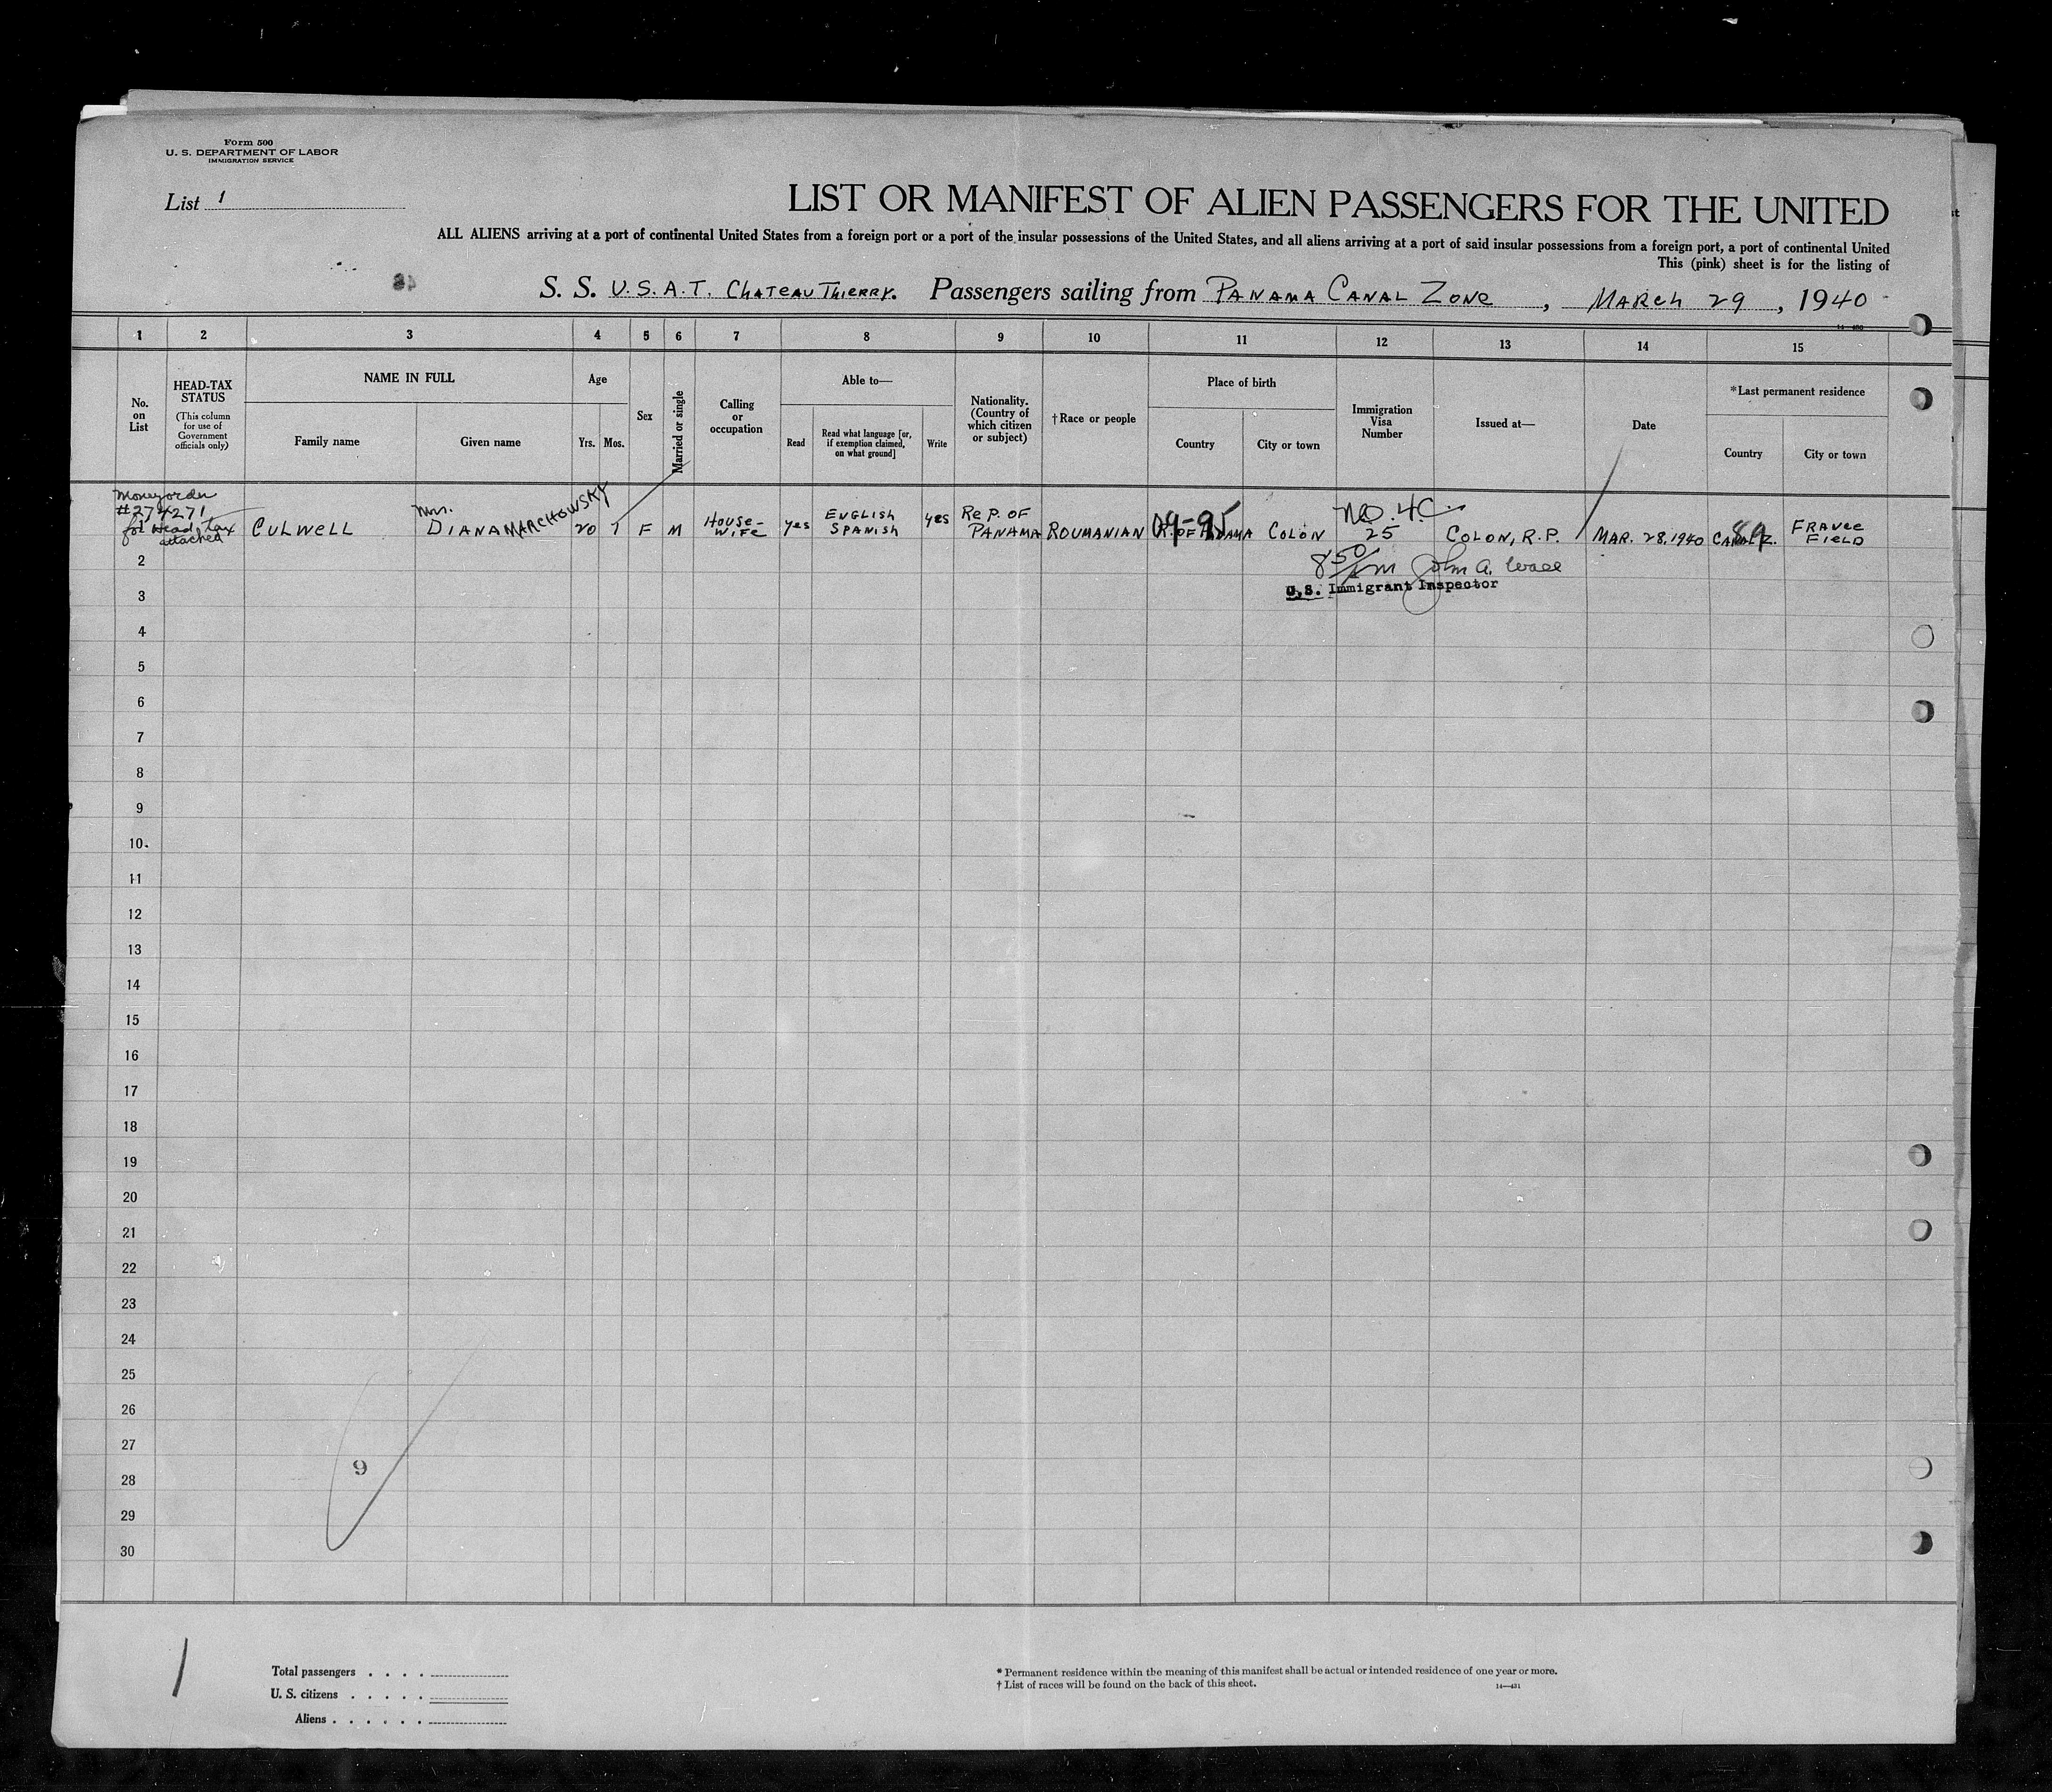 Form 500
U. S. DEPARTMENT OF LABOR
IMMIGRATION SERVICE
List 1
LIST OR MANIFEST OF ALIEN PASSENGERS FOR THE UNITED
ALL ALIENS arriving at a port of continental United States from a foreign port or a port of the insular possessions of the United States, and all aliens arriving at a port of said insular possessions from a foreign port, a port of continental United
This (pink) sheet is for the listing of
S. S. U.S.A.T. CHATEAU THIERRY. Passengers sailing from PANAMA CANAL ZONE, MARCH 29, 1940
1 2 3 4 5 6 7 8 9 10 11 12 13 14 15
No. on List
HEAD-TAX STATUS
(This column for use of Government officials only)
NAME IN FULL
Family name
Given name
Age
Yrs.
Mos.
Sex
Married or single
Calling or occupation
Able to—
Read
Read what language [or, if exemption claimed, on what ground]
Write
Nationality. (Country of which citizen or subject)
†Race or people
Place of birth
Country
City or town
Immigration Visa Number
Issued at—
Date
*Last permanent residence
Country
City or town
Money order
#274271
for Head tax
attached
CULWELL Mrs. DIANA MARCHOWSKY 20 7 F M HOUSE-WIFE yes ENGLISH SPANISH yes REP. OF PANAMA ROUMANIAN R. OF PANAMA COLON NO. 4C 25 COLON, R.P. MAR. 28, 1940 CANAL Z. FRANCE FIELD
09-95
89
John A.
U.S. Immigrant Inspector
2
3
4
5
6
7
8
9
10
11
12
13
14
15
16
17
18
19
20
21
22
23
24
25
26
27
28
29
30
9
1
Total passengers
U. S. citizens
Aliens
* Permanent residence within the meaning of this manifest shall be actual or intended residence of one year or more.
† List of races will be found on the back of this sheet.
14—431